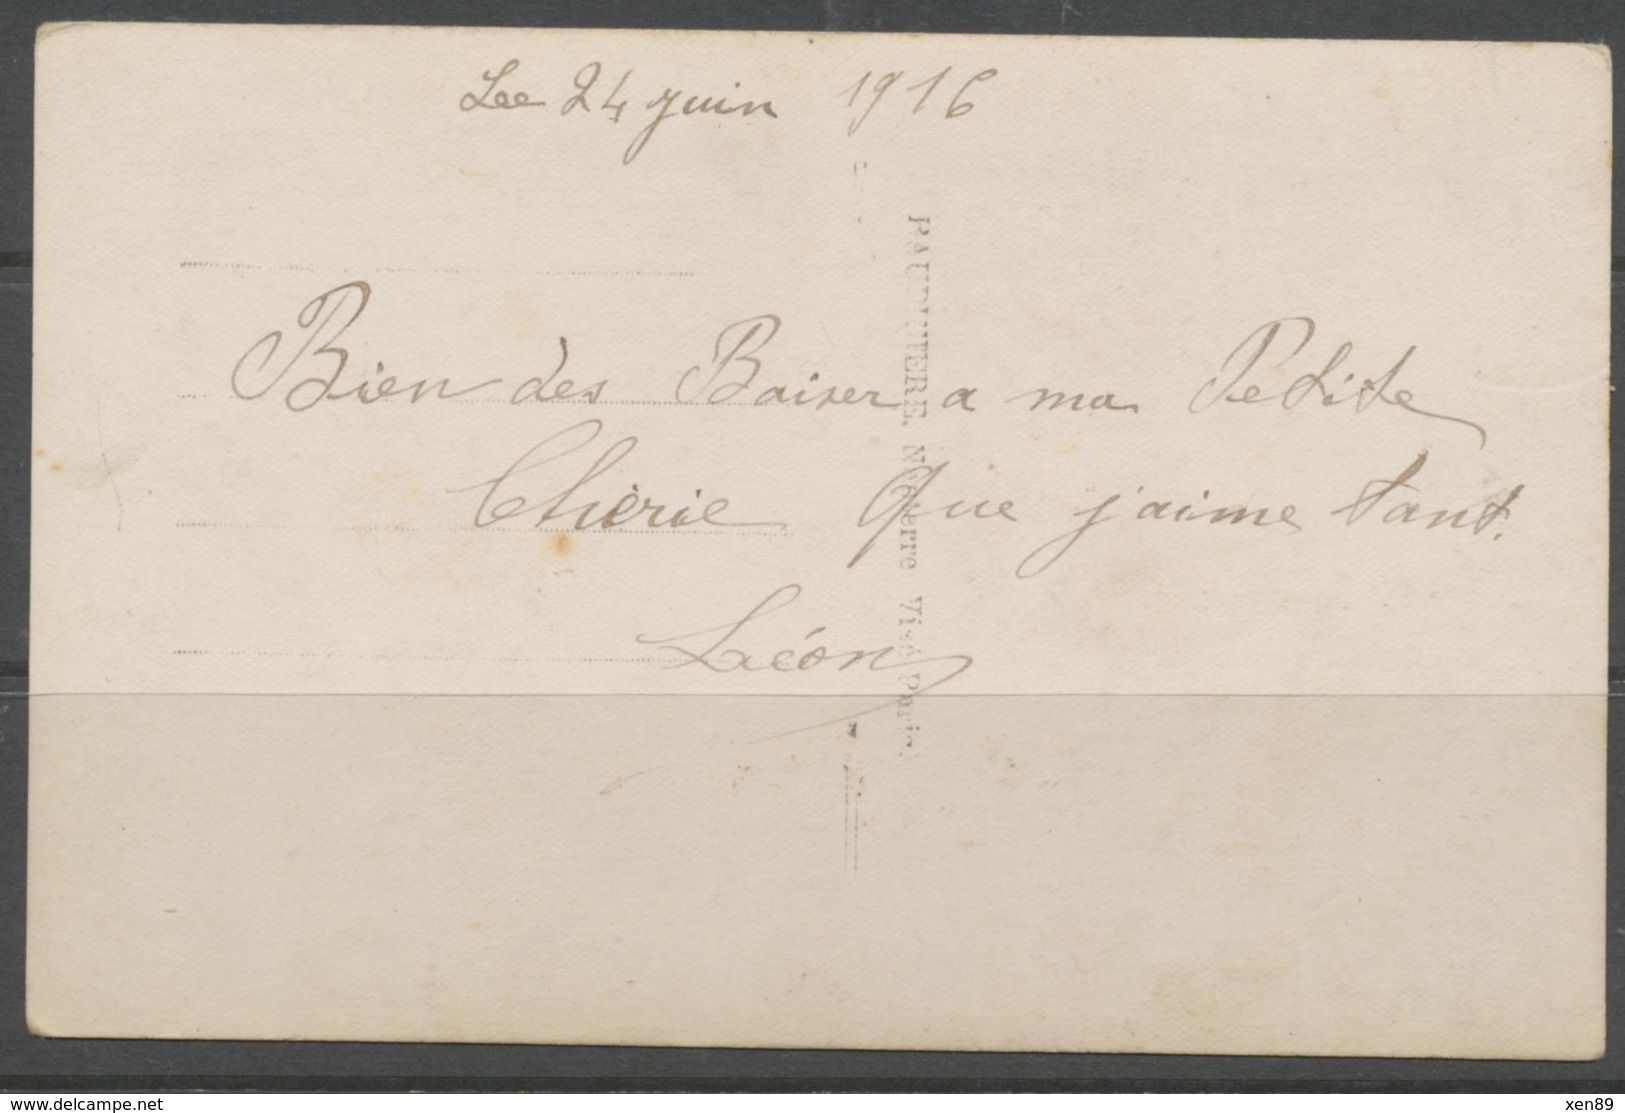 Lee 24 juin 1916
Bien des Baiser a ma Petite
Chèrie que j'aime tant.
Léon
Visé Paris.
www.delcampe.net
xen89